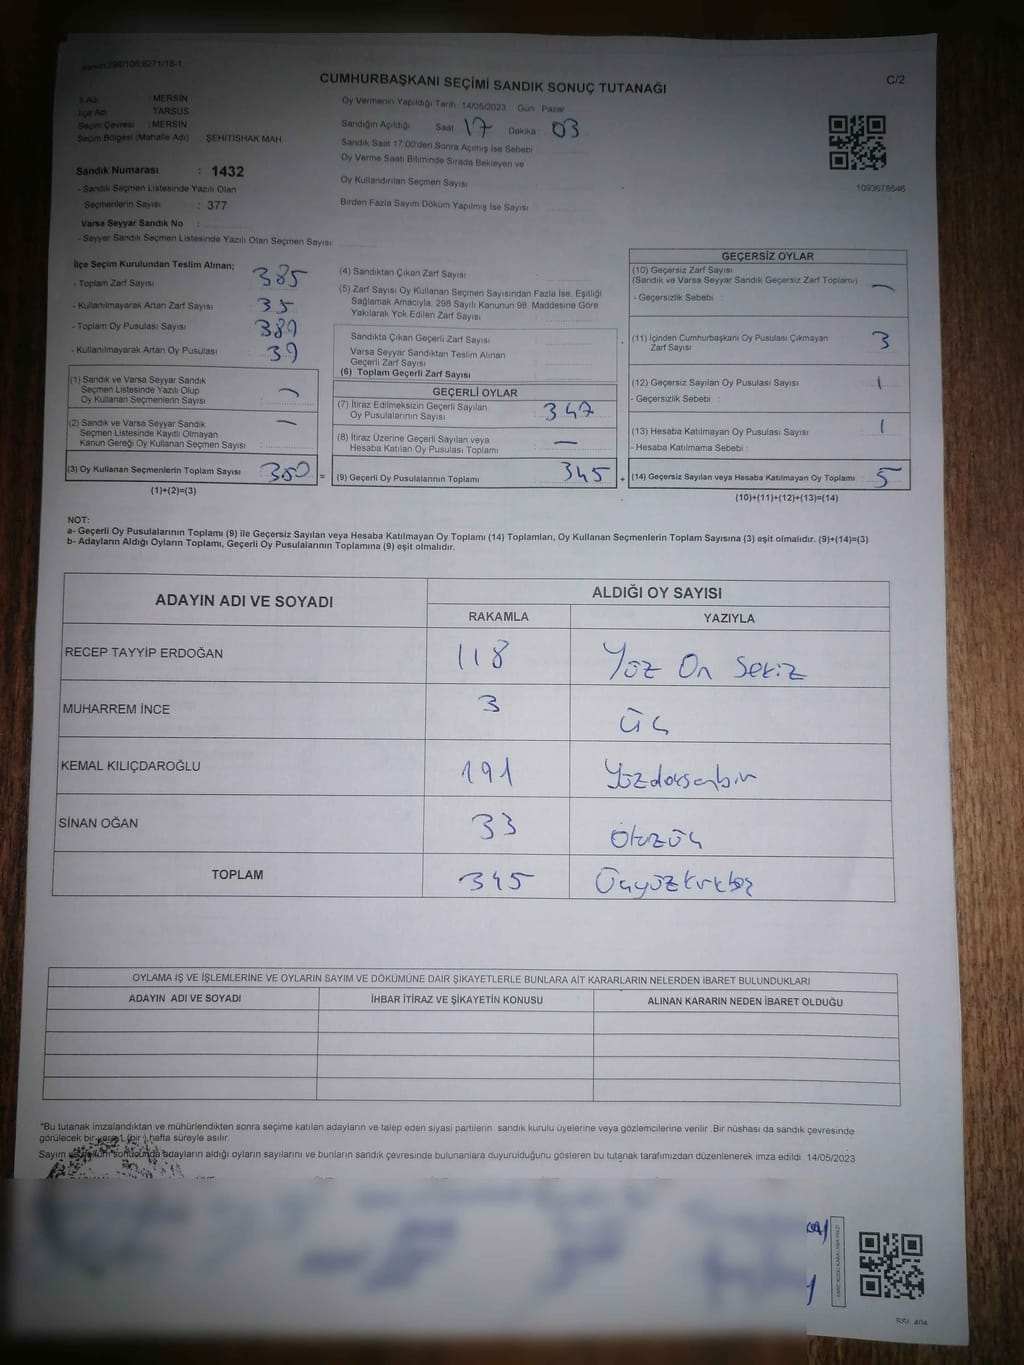 CUMHURBAŞKANI SEÇİMİ SANDIK SONUÇ TUTANAĞI
C/2
İl Adı : MERSİN
İlçe Adı : TARSUS
Seçim Çevresi : MERSİN
Seçim Bölgesi (Mahalle Adı) : ŞEHİTİSHAK MAH
Oy Vermenin Yapıldığı Tarih : 14/05/2023 Gün : Pazar
Sandığın Açıldığı Saat 17 Dakika : 03
Sandık Saat 17:00'den Sonra Açılmış İse Sebebi
Oy Verme Saati Bitiminde Sırada Bekleyen ve
Oy Kullandırılan Seçmen Sayısı
Birden Fazla Sayım Döküm Yapılmış İse Sayısı
1093678546
Sandık Numarası : 1432
- Sandık Seçmen Listesinde Yazılı Olan
Seçmenlerin Sayısı : 377
Varsa Seyyar Sandık No :
- Seyyar Sandık Seçmen Listesinde Yazılı Olan Seçmen Sayısı
İlçe Seçim Kurulundan Teslim Alınan;
- Toplam Zarf Sayısı 385
- Kullanılmayarak Artan Zarf Sayısı 35
- Toplam Oy Pusulası Sayısı 389
- Kullanılmayarak Artan Oy Pusulası 39
(1) Sandık ve Varsa Seyyar Sandık
Seçmen Listesinde Yazılı Olup
Oy Kullanan Seçmenlerin Sayısı —
(2) Sandık ve Varsa Seyyar Sandık
Seçmen Listesinde Kayıtlı Olmayan
Kanun Gereği Oy Kullanan Seçmen Sayısı —
(3) Oy Kullanan Seçmenlerin Toplam Sayısı 350 =
(1)+(2)=(3)
(4) Sandıktan Çıkan Zarf Sayısı
(5) Zarf Sayısı Oy Kullanan Seçmen Sayısından Fazla İse, Eşitliği
Sağlamak Amacıyla, 298 Sayılı Kanunun 98. Maddesine Göre
Yakılarak Yok Edilen Zarf Sayısı
Sandıkta Çıkan Geçerli Zarf Sayısı
Varsa Seyyar Sandıktan Teslim Alınan
Geçerli Zarf Sayısı
(6) Toplam Geçerli Zarf Sayısı
GEÇERLİ OYLAR
(7) İtiraz Edilmeksizin Geçerli Sayılan
Oy Pusulalarının Sayısı 347
(8) İtiraz Üzerine Geçerli Sayılan veya
Hesaba Katılan Oy Pusulası Toplamı —
(9) Geçerli Oy Pusulalarının Toplamı 345 +
GEÇERSİZ OYLAR
(10) Geçersiz Zarf Sayısı
(Sandık ve Varsa Seyyar Sandık Geçersiz Zarf Toplamı) —
- Geçersizlik Sebebi :
(11) İçinden Cumhurbaşkanı Oy Pusulası Çıkmayan
Zarf Sayısı 3
(12) Geçersiz Sayılan Oy Pusulası Sayısı 1
- Geçersizlik Sebebi :
(13) Hesaba Katılmayan Oy Pusulası Sayısı 1
- Hesaba Katılmama Sebebi :
(14) Geçersiz Sayılan veya Hesaba Katılmayan Oy Toplamı 5
(10)+(11)+(12)+(13)=(14)
NOT:
a- Geçerli Oy Pusulalarının Toplamı (9) ile Geçersiz Sayılan veya Hesaba Katılmayan Oy Toplamı (14) Toplamları, Oy Kullanan Seçmenlerin Toplam Sayısına (3) eşit olmalıdır. (9)+(14)=(3)
b- Adayların Aldığı Oyların Toplamı, Geçerli Oy Pusulalarının Toplamına (9) eşit olmalıdır.
ADAYIN ADI VE SOYADI
ALDIĞI OY SAYISI
RAKAMLA YAZIYLA
RECEP TAYYİP ERDOĞAN 118 Yüz On Sekiz
MUHARREM İNCE 3 Üç
KEMAL KILIÇDAROĞLU 191 Yüzdoksanbir
SİNAN OĞAN 33 Otuzüç
TOPLAM 345 Üçyüzkırkbeş
OYLAMA İŞ VE İŞLEMLERİNE VE OYLARIN SAYIM VE DÖKÜMÜNE DAİR ŞİKAYETLERLE BUNLARA AİT KARARLARIN NELERDEN İBARET BULUNDUKLARI
ADAYIN ADI VE SOYADI İHBAR İTİRAZ VE ŞİKAYETİN KONUSU ALINAN KARARIN NEDEN İBARET OLDUĞU
*Bu tutanak imzalandıktan ve mühürlendikten sonra seçime katılan adayların ve talep eden siyasi partilerin sandık kurulu üyelerine veya gözlemcilerine verilir. Bir nüshası da sandık çevresinde
görülecek bir yere 1 (bir) hafta süreyle asılır.
Sayım ve döküm sonucunda adayların aldığı oyların sayılarını ve bunların sandık çevresinde bulunanlara duyurulduğunu gösteren bu tutanak tarafımızdan düzenlenerek imza edildi. 14/05/2023